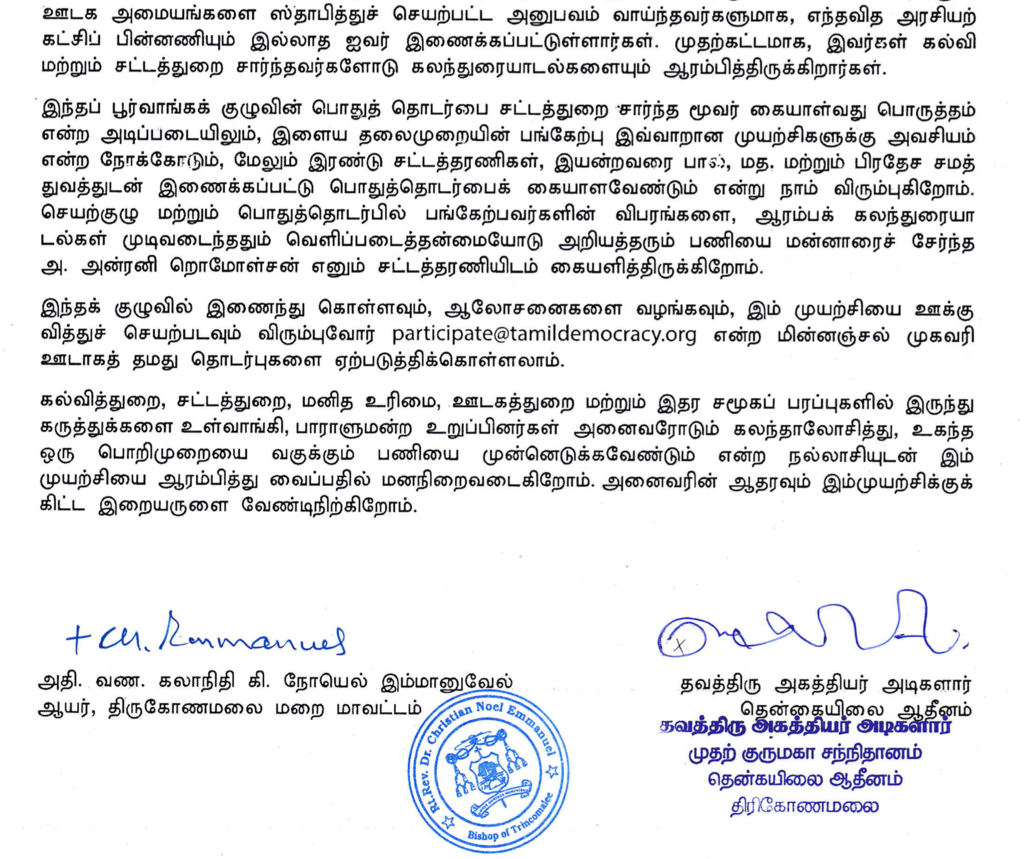 ஊடக அமையங்களை ஸ்தாபித்துச் செயற்பட்ட அனுபவம் வாய்ந்தவர்களுமாக, எந்தவித அரசியற்
கட்சிப் பின்னணியும் இல்லாத ஐவர் இணைக்கப்பட்டுள்ளார்கள். முதற்கட்டமாக, இவர்கள் கல்வி
மற்றும் சட்டத்துறை சார்ந்தவர்களோடு கலந்துரையாடல்களையும் ஆரம்பித்திருக்கிறார்கள்.
இந்தப் பூர்வாங்கக் குழுவின் பொதுத் தொடர்பை சட்டத்துறை சார்ந்த மூவர் கையாள்வது பொருத்தம்
என்ற அடிப்படையிலும், இளைய தலைமுறையின் பங்கேற்பு இவ்வாறான முயற்சிகளுக்கு அவசியம்
என்ற நோக்கோடும், மேலும் இரண்டு சட்டத்தரணிகள், இயன்றவரை பால், மத. மற்றும் பிரதேச சமத்
துவத்துடன் இணைக்கப்பட்டு பொதுத்தொடர்பைக் கையாளவேண்டும் என்று நாம் விரும்புகிறோம்.
செயற்குழு மற்றும் பொதுத்தொடர்பில் பங்கேற்பவர்களின் விபரங்களை, ஆரம்பக் கலந்துரையா
டல்கள் முடிவடைந்ததும் வெளிப்படைத்தன்மையோடு அறியத்தரும் பணியை மன்னாரைச் சேர்ந்த
அ. அன்ரனி றொமோள்சன் எனும் சட்டத்தரணியிடம் கையளித்திருக்கிறோம்.
இந்தக் குழுவில் இணைந்து கொள்ளவும், ஆலோசனைகளை வழங்கவும், இம் முயற்சியை ஊக்கு
வித்துச் செயற்படவும் விரும்புவோர் participate@tamildemocracy.org என்ற மின்னஞ்சல் முகவரி
ஊடாகத் தமது தொடர்புகளை ஏற்படுத்திக்கொள்ளலாம்.
கல்வித்துறை, சட்டத்துறை, மனித உரிமை, ஊடகத்துறை மற்றும் இதர சமூகப் பரப்புகளில் இருந்து
கருத்துக்களை உள்வாங்கி, பாராளுமன்ற உறுப்பினர்கள் அனைவரோடும் கலந்தாலோசித்து, உகந்த
ஒரு பொறிமுறையை வகுக்கும் பணியை முன்னெடுக்கவேண்டும் என்ற நல்லாசியுடன் இம்
முயற்சியை ஆரம்பித்து வைப்பதில் மனநிறைவடைகிறோம். அனைவரின் ஆதரவும் இம்முயற்சிக்குக்
கிட்ட இறையருளை வேண்டிநிற்கிறோம்.
அதி. வண. கலாநிதி கி. நோயெல் இம்மானுவேல்
ஆயர், திருகோணமலை மறை மாவட்டம்
Rt. Rev. Dr. Christian Noel Emmanuel
Bishop of Trincomalee
தவத்திரு அகத்தியர் அடிகளார்
தென்கையிலை ஆதீனம்
தவத்திரு அகத்தியர் அடிகளார்
முதற் குருமகா சந்நிதானம்
தென்கயிலை ஆதீனம்
திரிகோணமலை